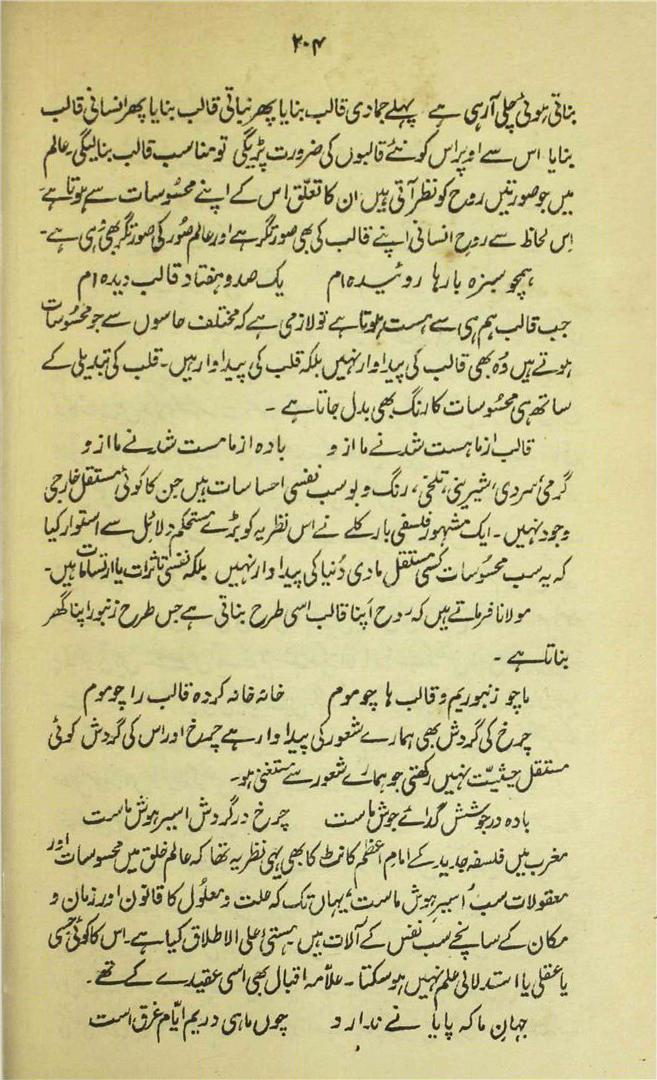 ۲۰۴
بناتی ہوئی چلی آ رہی ہے پہلے جمادی قالب بنایا پھر نباتی قالب بنایا پھر انسانی قالب
بنایا اس سے اوپر اس کو نئے قالبوں کی ضرورت پڑیگی تو متناسب قالب بنالیگی۔ عالم
میں جو صورتیں روح کو نظر آتی ہیں ان کا تعلق اس کے اپنے محسوسات سے ہوتا ہے
اِس لحاظ سے روحِ انسانی اپنے قالب کی بھی صورتگر ہے اور عالم صُور کی صورتگر بھی وُہی ہے۔
ہمچو سبزہ بارہا روئیدہ ام یک صد و ہفتاد قالب دیدہ ام
جب قالب ہم ہی سے ہست ہوتا ہے تو لازمی ہے کہ مختلف حاسوں سے جو محسُوسات
ہوتے ہیں وُہ بھی قالب کی پیداوار نہیں بلکہ قلب کی پیداوار ہیں۔ قلب کی تبدیلی کے
ساتھ ہی محسُوسات کا رنگ بھی بدل جاتا ہے ۔
قالب از ما ہست شد نے ما از و بادہ از ما مست شد نے ما از و
گرمی، سردی، شیرینی، تلخی، رنگ و بو سب نفسی احساسات ہیں جن کا کوئی مستقل خارجی
وجود نہیں۔ ایک مشہور فلسفی بارکلے نے اس نظریہ کو بڑے مستحکم دلائل سے استوار کیا
کہ یہ سب محسُوسات کسی مستقل مادی دُنیا کی پیداوار نہیں بلکہ نفسی تاثرات یا ارتسامات ہیں۔
مولانا فرماتے ہیں کہ روح اپنا قالب اسی طرح بناتی ہے جس طرح زنبور اپنا گھر
بناتا ہے ۔
ما چو زنبوریم و قالب ہا چو موم خانہ خانہ کردہ قالب را چو موم
چرخ کی گردش بھی ہمارے شعور کی پیداوار ہے چرخ اور اس کی گردش کوئی
مستقل حیثیّت نہیں رکھتی جو ہمارے شعور سے مستغنی ہو۔
بادہ در جوشش گدائے جوشِ ماست چرخ در گردش اسیرِ ہوشِ ماست
مغرب میں فلسفہ جدید کے امامِ اعظم کانٹ کا بھی یہی نظریہ تھا کہ عالم خلق میں محسوسات اور
معقولات سب "اسیر ہوش ماست" یہاں تک کہ علت و معلُول کا قانون اور زمان و
مکان کے سانچے سب نفس کے آلات ہیں۔ ہستئ علی الاطلاق کیا ہے۔ اس کا کوئی حِسی
یا عقلی یا استدلالی علم نہیں ہوسکتا۔ علاّمہ اقبال بھی اسی عقیدے کے تھے۔
جہانِ ما کہ پایا نے ندارو چوں ماہی در یمِ ایّام غرق است